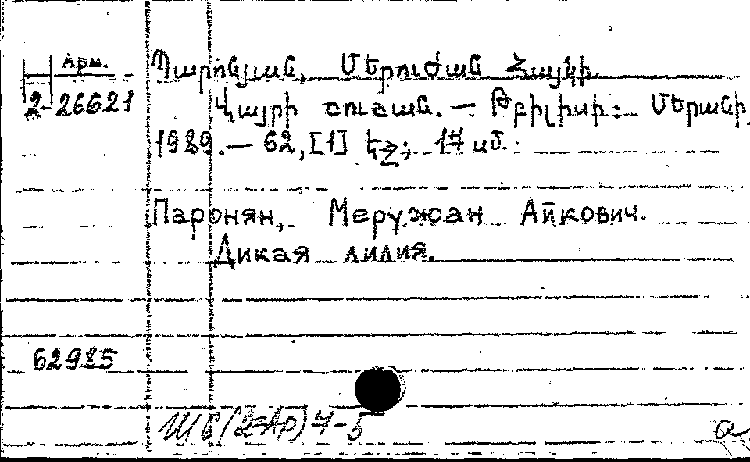 Арм.
2-26621
Պարոնյան, Մերուժան Հայկի.
Վայրի շուշան. — Թբիլիսի: Մերանի,
1989. — 62, [1] էջ; 17 սմ.
Паронян, Меружан Айкович.
Дикая лилия.
62985
Ш6(2=Ар)7-5
а